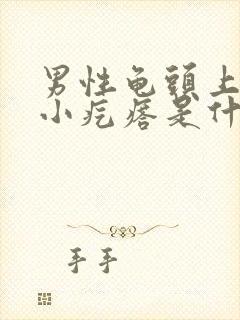 男性龟頭上
小疙瘩是什
手手